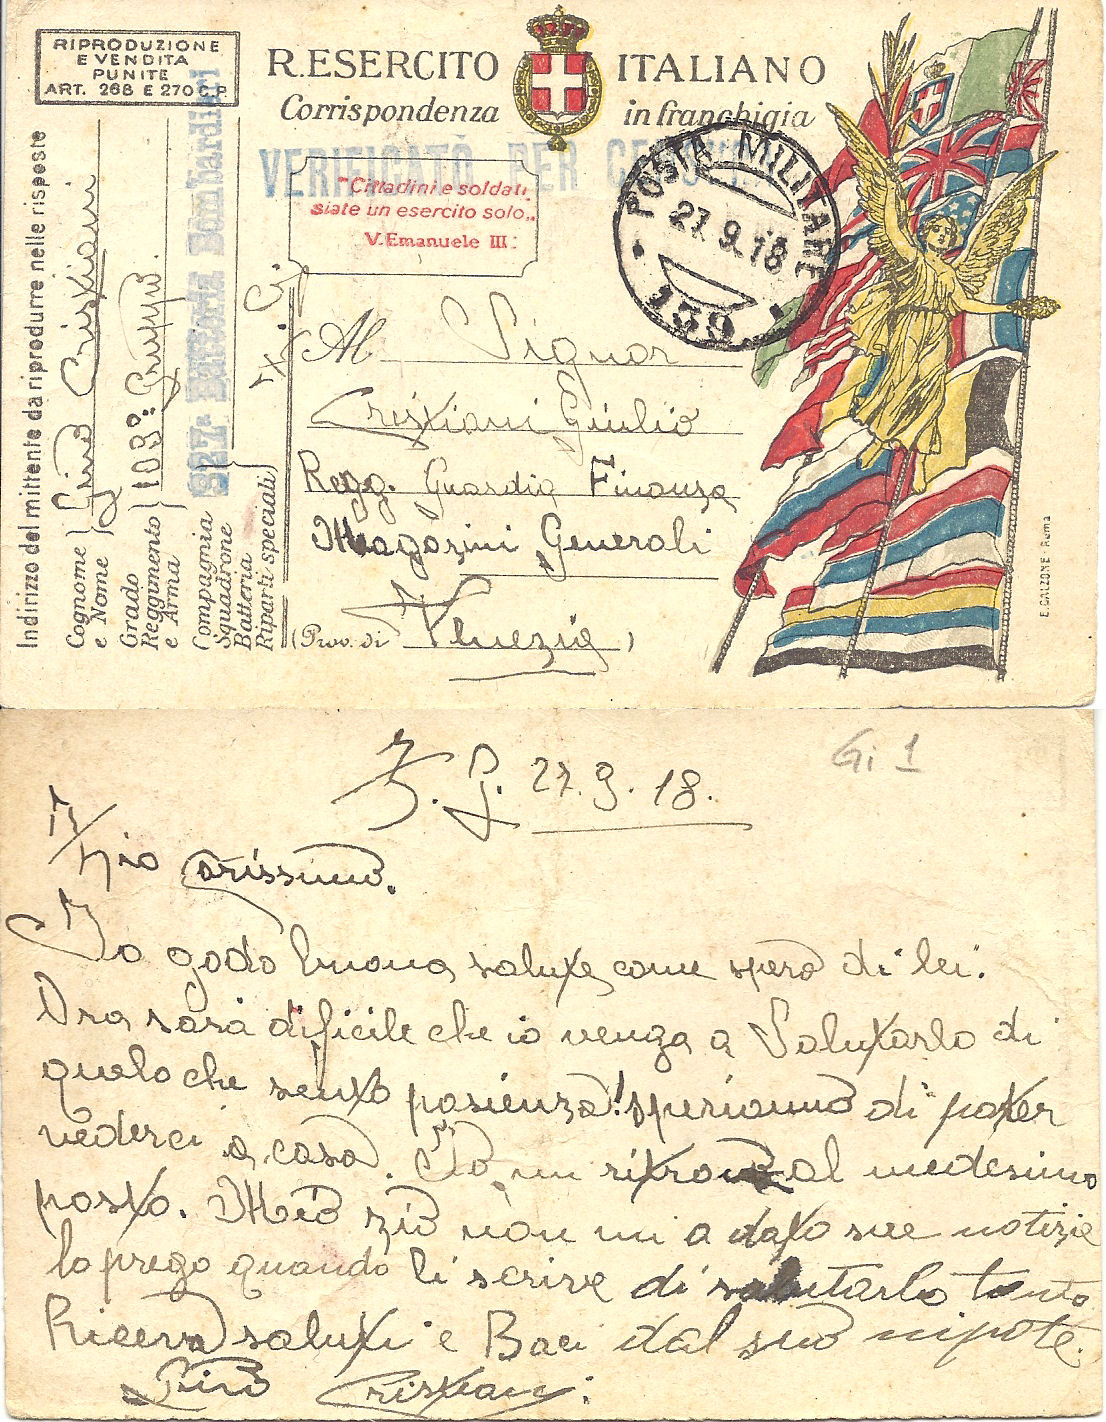 RIPRODUZIONE
E VENDITA
PUNITE
ART. 268 E 270 C.P.
R. ESERCITO ITALIANO
Corrispondenza in franchigia
VERIFICATO PER CENSURA
"Cittadini e soldati
siate un esercito solo"
V. Emanuele III:
POSTA MILITARE
27.9.18
139
Indirizzo del mittente da riprodurre nelle risposte
Cognome e Nome } Gino Cristiani
Grado Reggimento e Arma } 103°: Gruppo.
Compagnia Squadrone Batteria Riparti speciali } 827a Batteria Bombardieri
Al Signor
Cristiani Giulio
Regg. Guardia Finanza
Magazini Generali
(Prov. di Venezia)
E. CALZONE - Roma
Gi 1
Z. G. 27.9.18.
Mio Carissimo.
Io godo buona salute come spero di lei.
Ora sarà dificile che io venga a Salutarlo di
quelo che sento pasienza! speriamo di poter
vederci a casa. Io mi ritrovo al medesimo
posto. Mio zio non mi a dato sue notizie
lo prego quando li scrive di salutarlo tanto
Riceva saluti e Baci dal suo nipote.
Gino Cristiani: